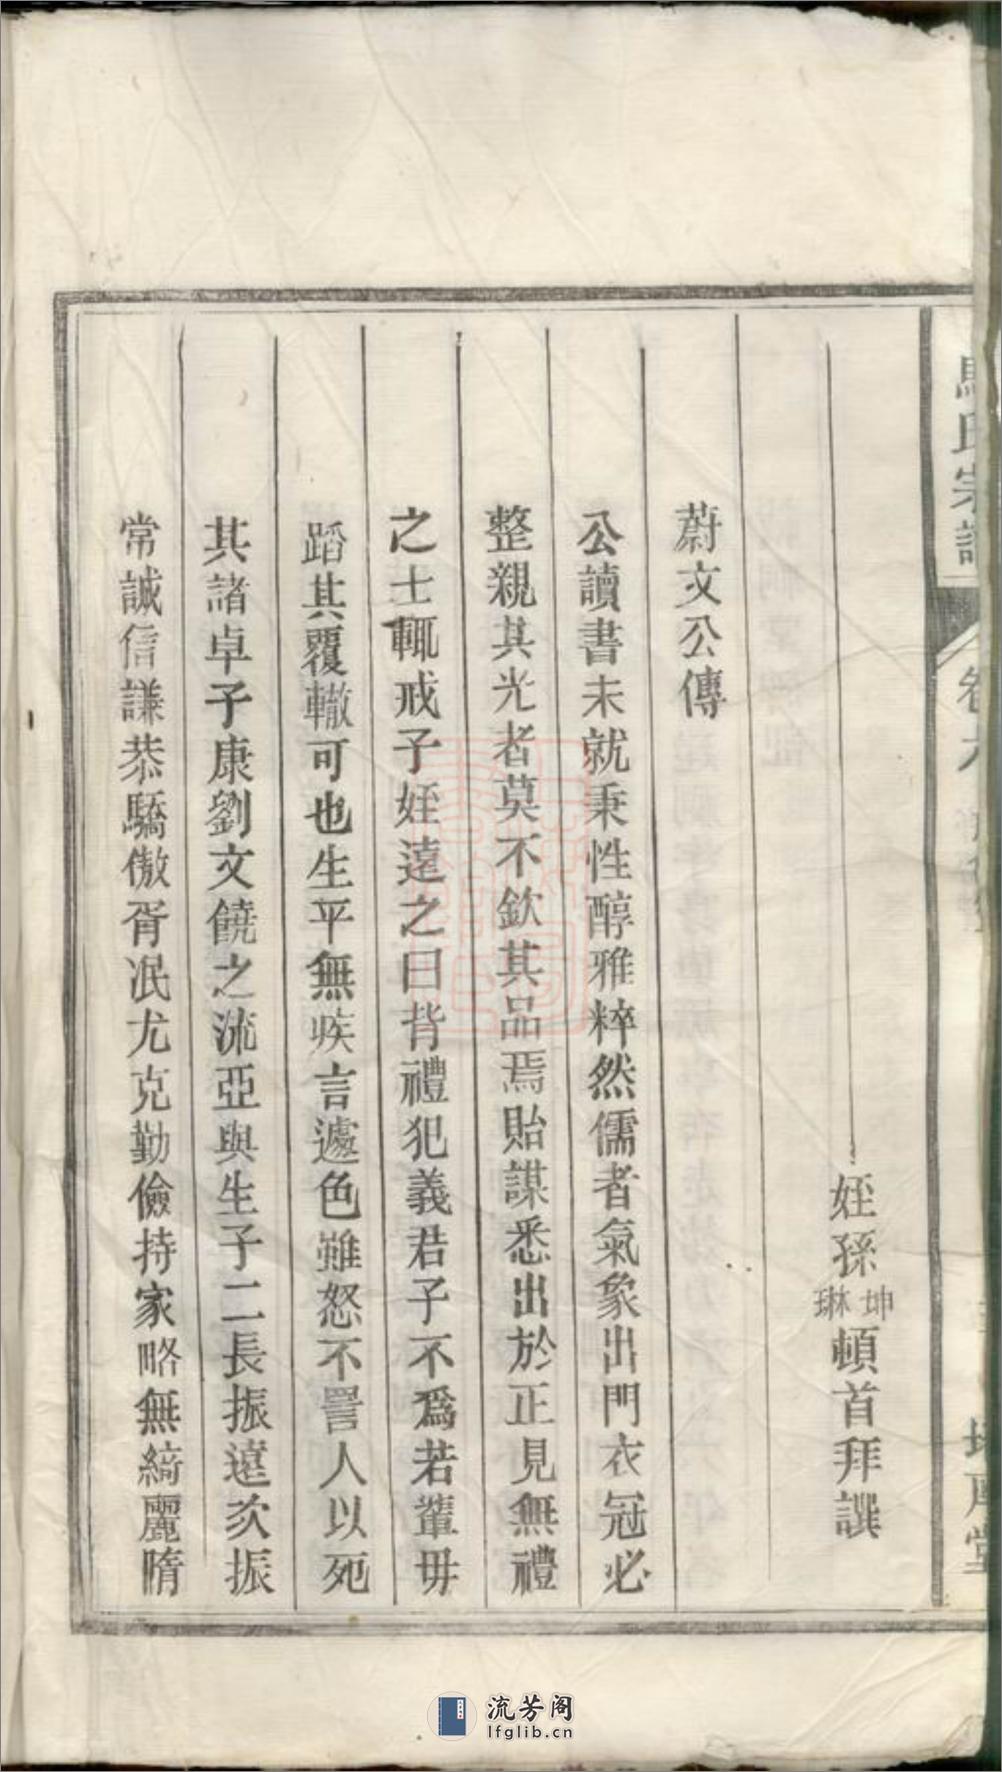 馬氏宗譜
卷六
姪孫坤琳頓首拜譔
蔚文公傳
公讀書未就秉性醇雅粹然儒者氣象出門衣冠必
整親其光者莫不欽其品焉貽謀悉出於正見無禮
之士輒戒子姪遠之曰背禮犯義君子不爲若輩毋
蹈其覆轍可也生平無疾言遽色雖怒不詈人以死
其諸卓子康劉文饒之流亞與生子二長振遠次振
常誠信謙恭驕傲胥泯尤克勤儉持家略無綺麗惰
流芳阁
lfglib.cn